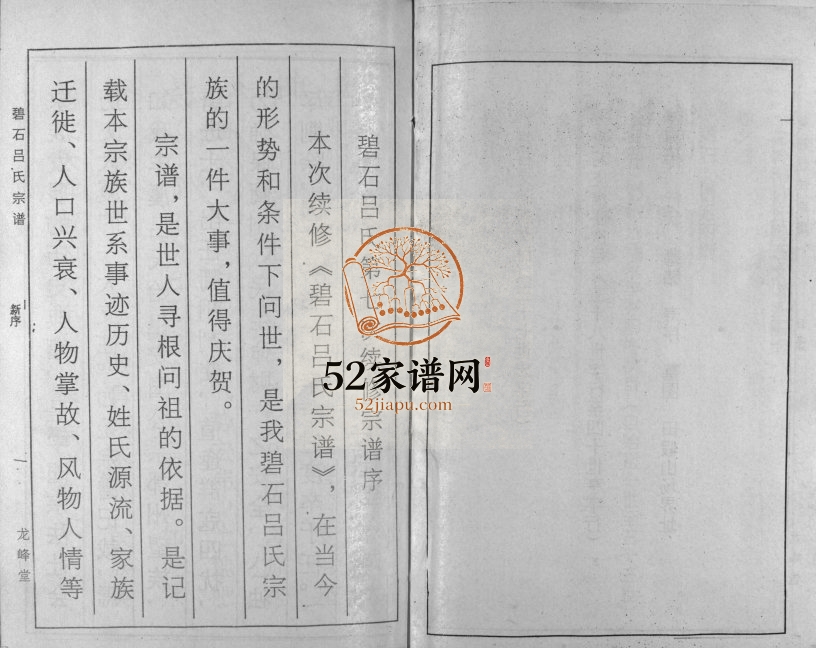 碧石吕氏第七 续修宗谱序
本次续修《碧石吕氏宗谱》，在当今
的形势和条件下问世，是我碧石吕氏宗
族的一件大事，值得庆贺。
宗谱，是世人寻根问祖的依据。是记
载本宗族世系事迹历史、姓氏源流、家族
迁徙、人口兴衰、人物掌故、风物人情等
碧石吕氏宗谱
新序
一
龙峰堂
52家谱网
52jiapu.com